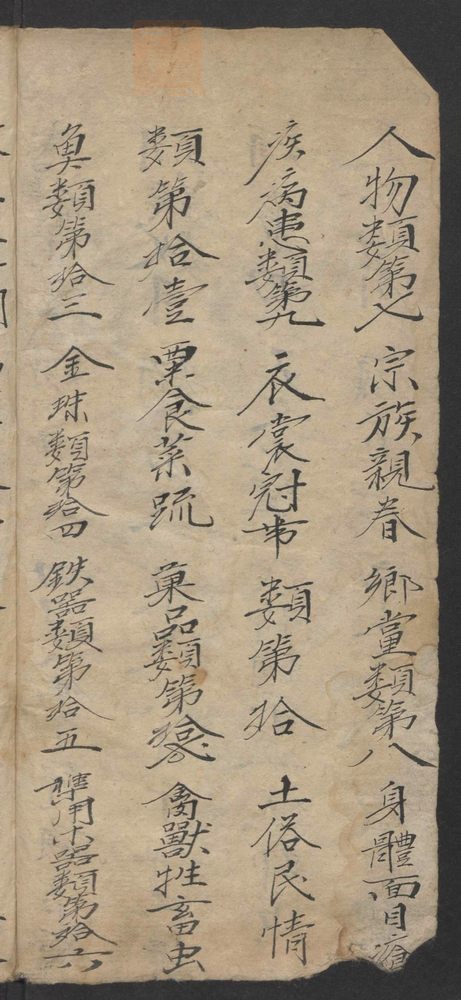 人物類第七 宗族親眷 鄉黨類第八 身體面目瘡
疾病患類第九 衣裳冠市 類第拾 土俗民情
類第拾壹 粟食菜疏 菓品類第拾 禽獸牲畜虫
魚類第拾三 金珠類第拾四 鉄器類第拾五 用大器類第拾六